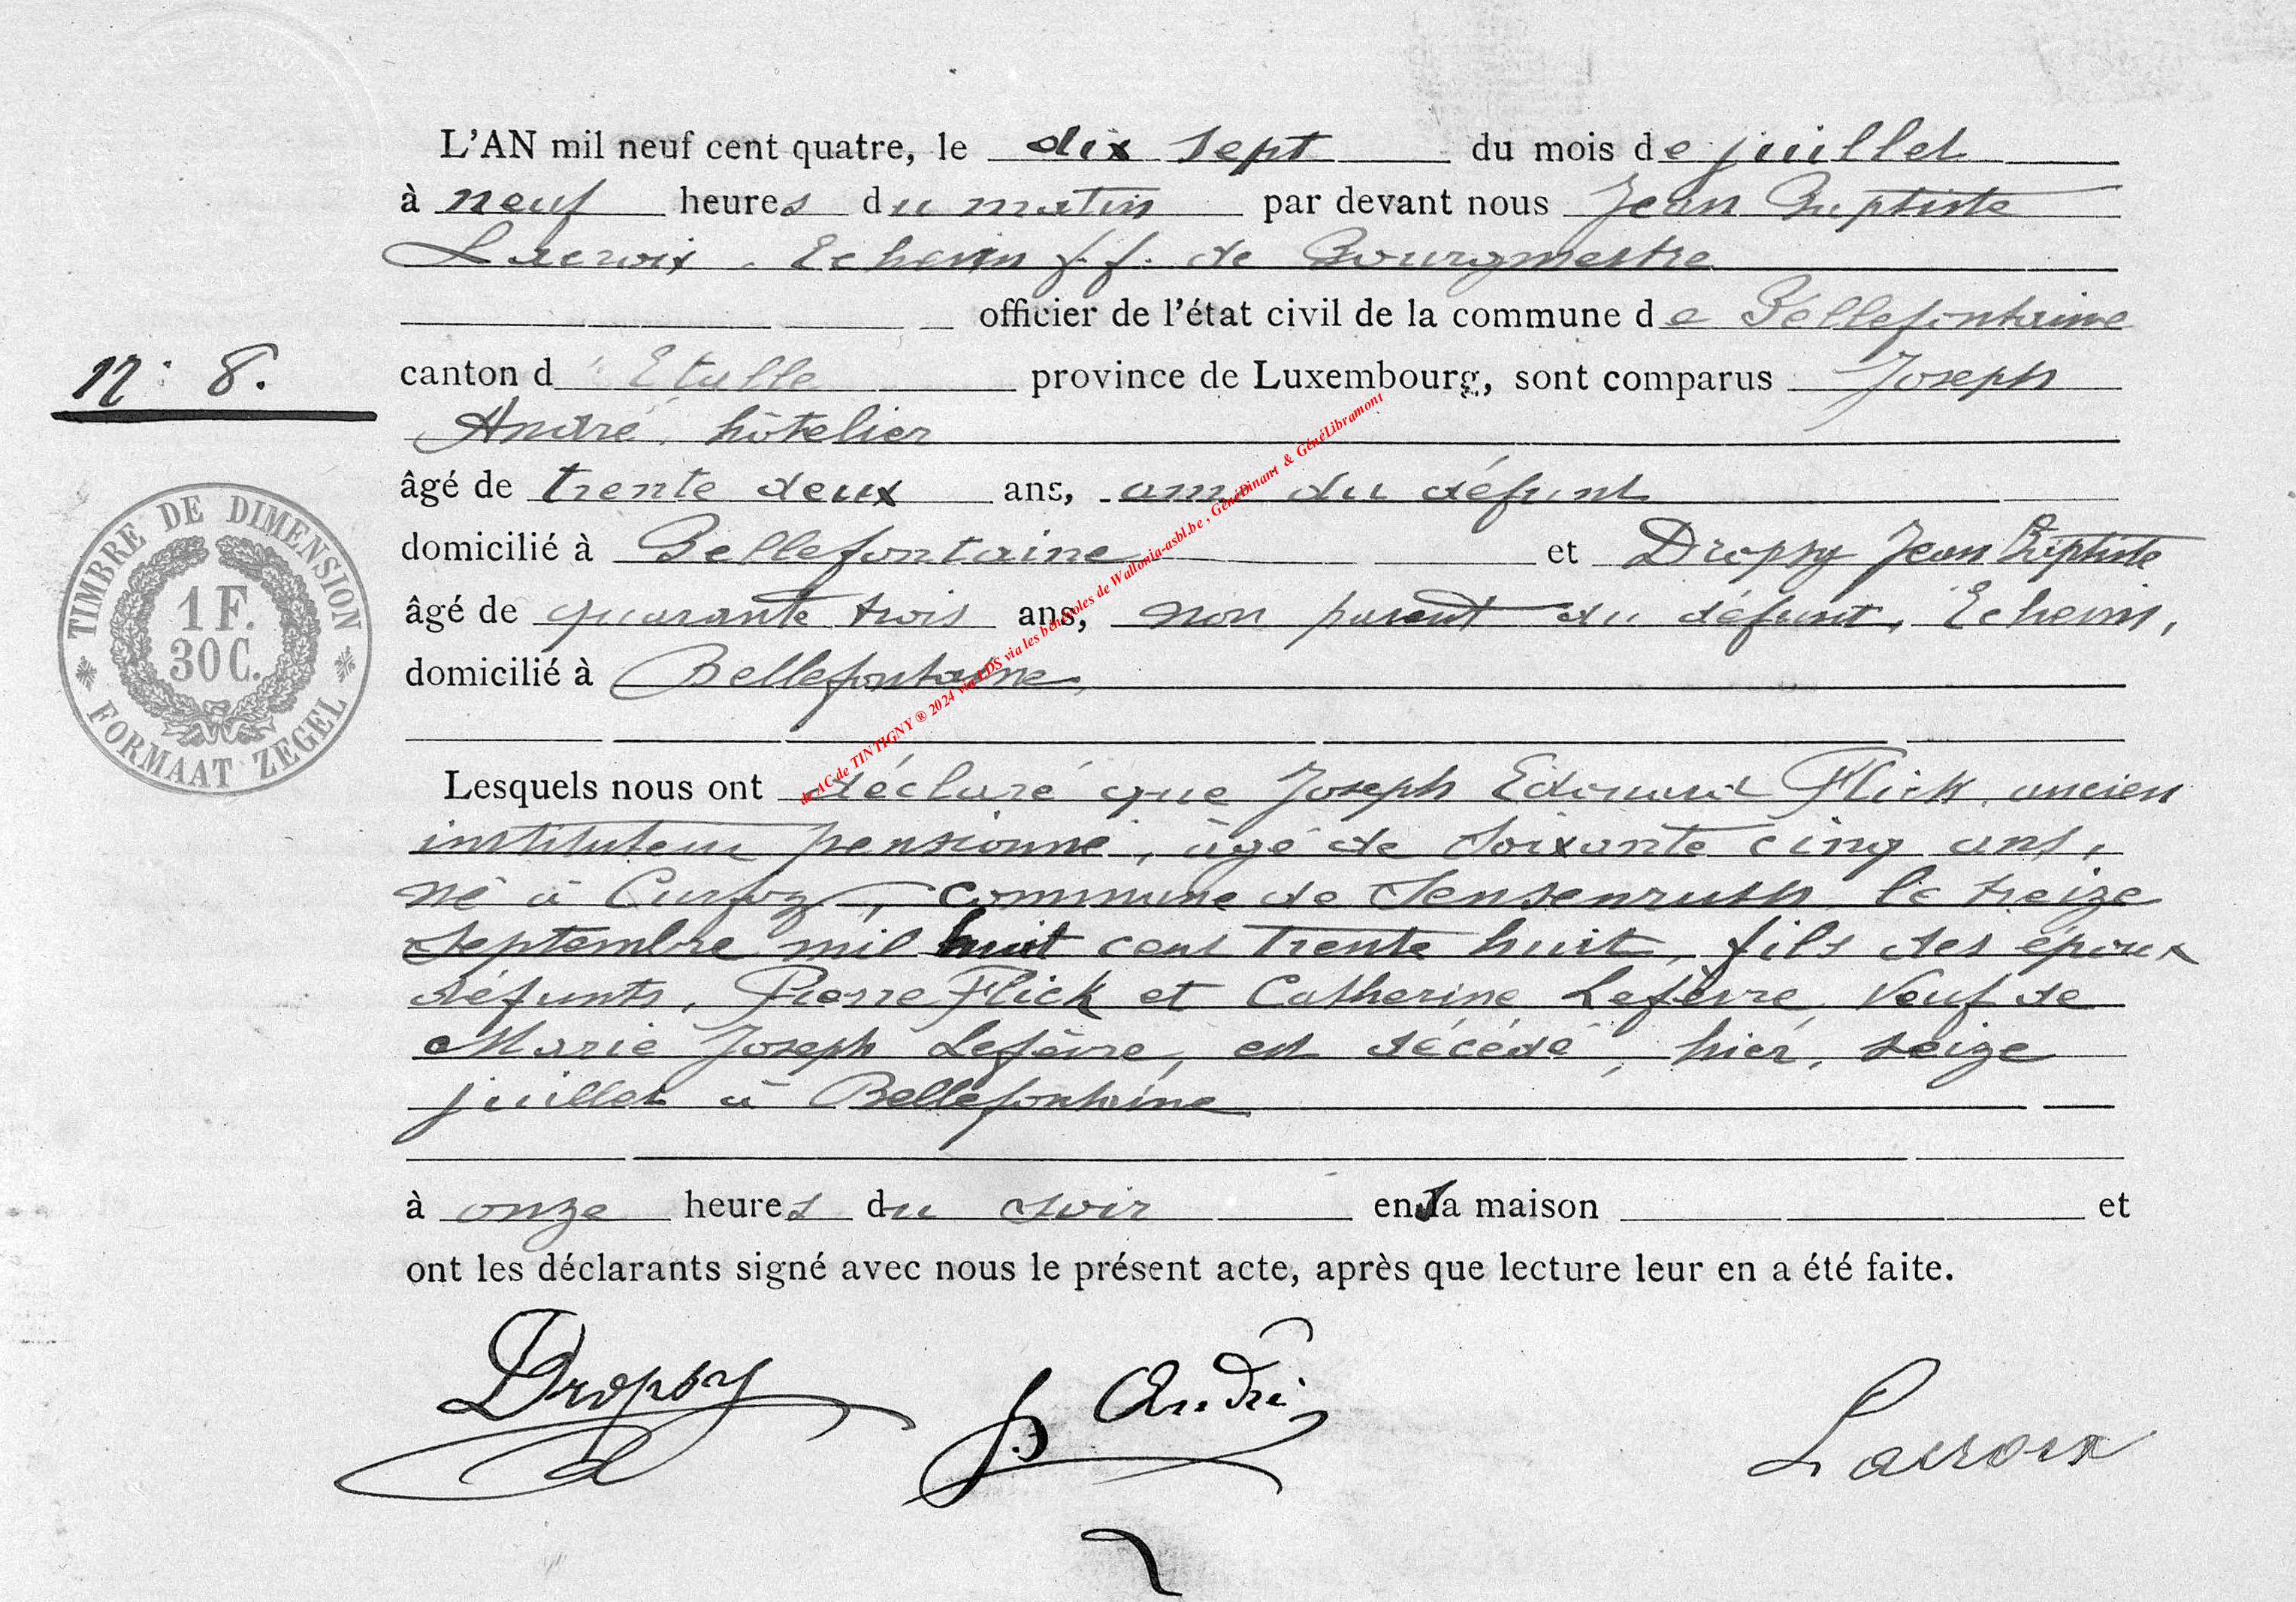 L'AN mil neuf cent quatre, le dix sept du mois de juillet
à neuf heures du matin par devant nous Jean Baptiste
Lacroix, Echevin f.f. de Bourgmestre
officier de l'état civil de la commune de Bellefontaine
N° 8.
canton d'Etalle province de Luxembourg, sont comparus Joseph
André, hôtelier
âgé de trente deux ans, ami du défunt
domicilié à Bellefontaine et Dropsy Jean Baptiste
âgé de quarante trois ans, non parent du défunt, Echevin,
domicilié à Bellefontaine,
TIMBRE DE DIMENSION
1 F.
30 C.
FORMAAT ZEGEL
de AC de TINTIGNY ® 2024 via LDS via les bénévoles de Wallonia-asbl.be, GénéDinant & GénéLibramont
Lesquels nous ont déclaré que Joseph Edouard Flick, ancien
instituteur pensionné, âgé de soixante cinq ans,
né à Curfoz, commune de Sensenruth le treize
septembre mil huit cent trente huit, fils des époux
défunts, Pierre Flick et Catherine Lefèvre, veuf de
Marie Joseph Lefèvre, est décédé, hier, seize
juillet à Bellefontaine
à onze heures du soir en sa maison et
ont les déclarants signé avec nous le présent acte, après que lecture leur en a été faite.
Dropsy J. André Lacroix